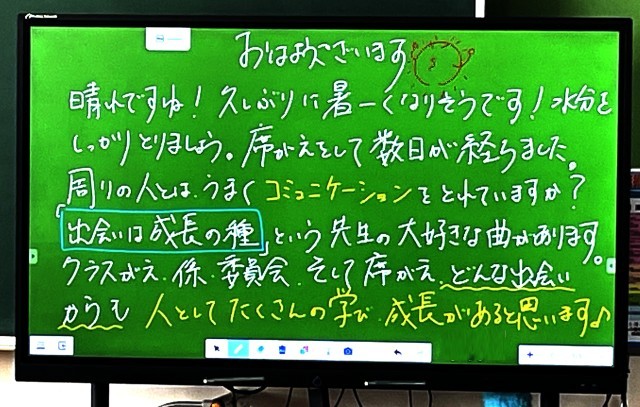 おはようございます
晴れですね！久しぶりに暑ーくなりそうです！水分を
しっかりとりましょう。席がえをして数日が経ちました。
周りの人とは、うまくコミュニケーションをとれていますか？
「出会いは成長の種」という先生の大好きな曲があります。
クラスがえ、係、委員会、そして席がえ、どんな出会い
からも人としてたくさんの学び、成長があると思います♪